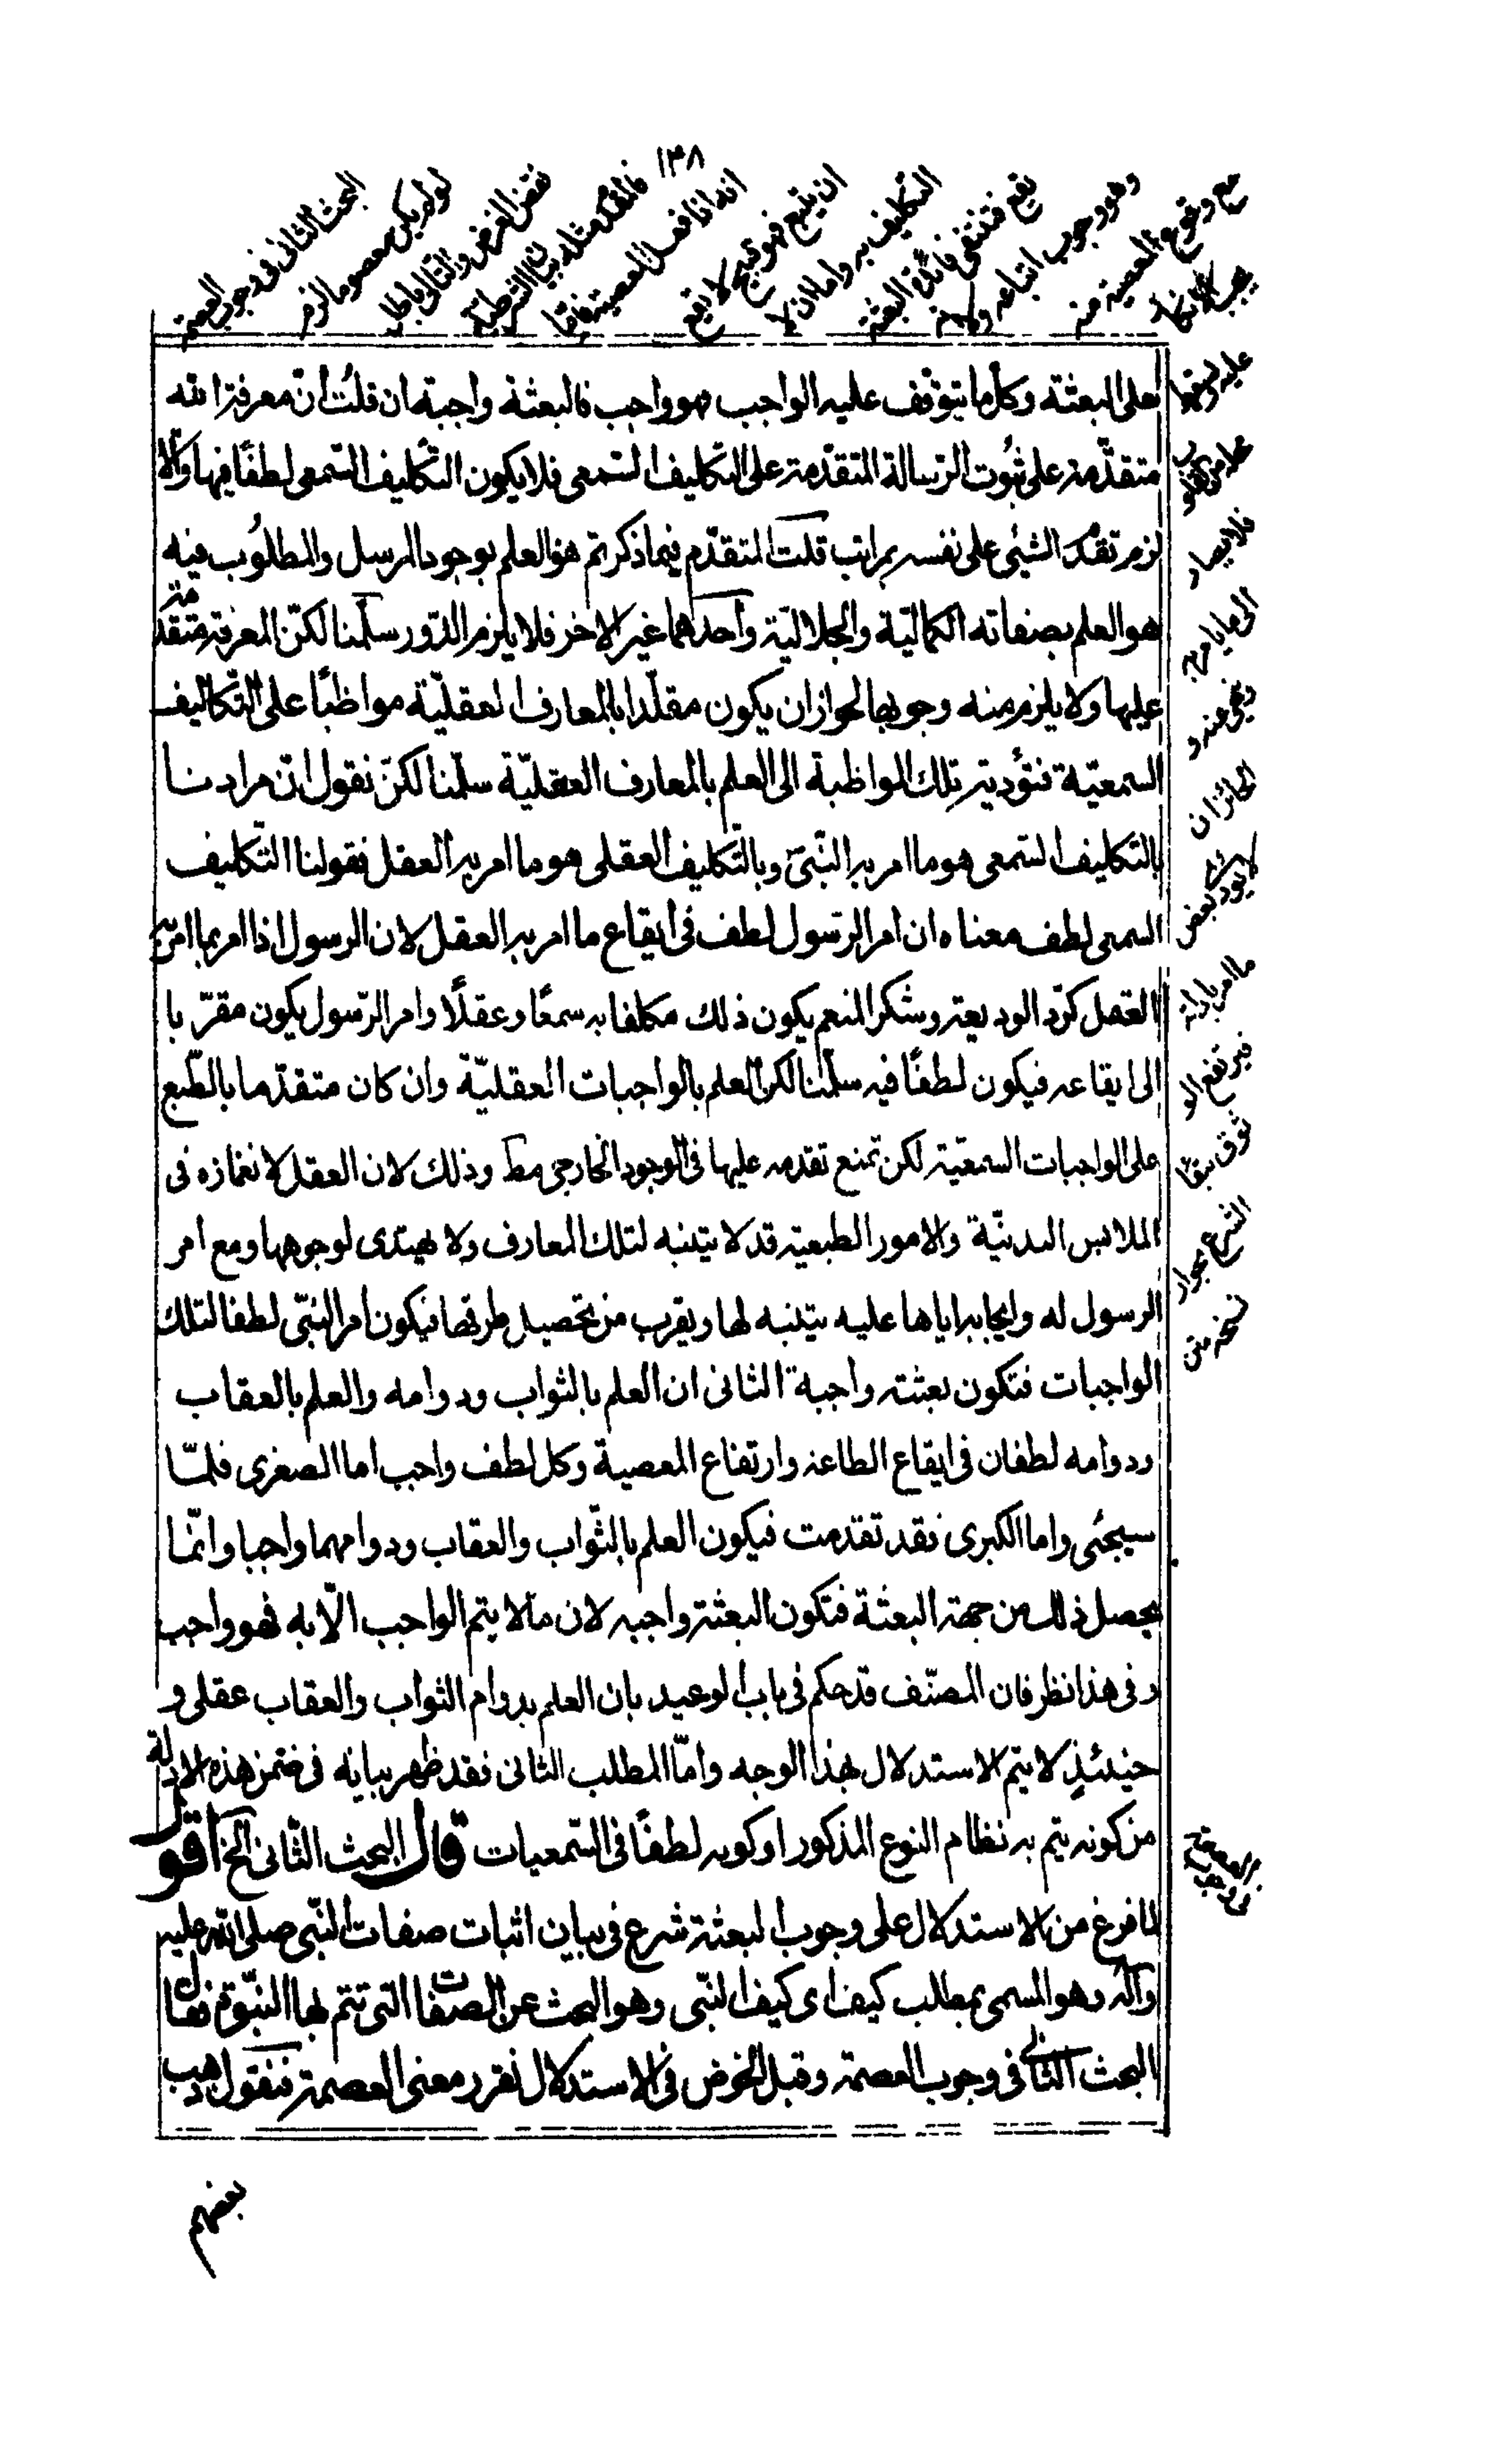 ١٣٨
البحث الثانى فى وجوب العصمة
لو لم يكن معصوما لزم
نقض الغرض والتالى باطل
فالمقدم مثله بيان الشرطية
انه اذا فعل المعصية فاما
ان يتبع فهو قبيح لا يقع
التكليف به واما ان لا
يتبع فتنتفى فائدة البعثة
وهو وجوب اتباعه ولانه
مع وقوع المعصية منه
يجب الانكار
عليه فيسقط
محله من القلوب
فلا يصار
الى ما يامر به
وينهى عنه و
لجاز ان
لا يؤدى بعض
ما امر بادائه
فيرتفع الو
ثوق ببقاء
الشرع بجواز
نسخه متن
على البعثة وكل ما يتوقف عليه الواجب فهو واجب فالبعثة واجبة ان قلت ان معرفة الله
متقدّمة على ثبُوت الرسالة المتقدّمة على التكليف السّمعى فلا يكون التكليف السّمعى لطفًا فيها والّا
لزم تقدّم الشيئى على نفسه بمراتب قلت المتقدّم فيما ذكرتم هو العلم بوجود المرسل والمطلوُب فيه
هو العلم بصفاته الكماليّة والجلاليّة وأحدهما غير الاخر فلا يلزم الدّور سلّمنا لكنّ المعرفة متقدمة
عليها ولا يلزم منه وجوبها لجواز ان يكون مقلّدا بالمعارف العقليّة مواظبًا على التكاليف
السمعيّة فتؤديه تلك المواظبة الى العلم بالمعارف العقليّة سلّمنا لكن نقول انّ مرادنا
بالتكليف السّمعى هو ما امر به النّبىّ وبالتّكليف العقلى هو ما امر به العقل فقولنا التّكليف
السمعى لطف معناه ان امر الرّسول لطف فى ايقاع ما امر به العقل لان الرسول اذا امر بما امر به
العقل كردّ الوديعة وشكر المنعم يكون ذلك مكلفا به سمعًا وعقلًا وامر الرّسول يكون مقرّبا
الى ايقاعه فيكون لطفًا فيه سلّمنا لكن العلم بالواجبات العقليّة وان كان متقدّما بالطّبع
على الواجبات السمعيّة لكن تمنع تقدمه عليها فى الوجود الخارجى مط وذلك لان العقل لانغمازه فى
الملابس البدنيّة والامور الطبعية قد لا يتنبه لتلك المعارف ولا يهتدى لوجوبها ومع امر
الرسول له وايجابه اياها عليه يتنبه لها ويقرب من تحصيل طرقها فيكون امر النبّى لطفا لتلك
الواجبات فتكون بعثته واجبة الثانى ان العلم بالثواب ودوامه والعلم بالعقاب
ودوامه لطفان فى ايقاع الطاعة وارتفاع المعصية وكل لطف واجب اما الصغرى فلمّا
سيجئى واما الكبرى فقد تقدمت فيكون العلم بالثّواب والعقاب ودوامهما واجبا وانّما
يحصل ذلك من جهة البعثة فتكون البعثة واجبه لان ما لا يتم الواجب الّا به فهو واجب
وفى هذا نظر فان المصنّف قد حكم فى باب الوعيد بان العلم بدوام الثواب والعقاب عقلى و
حينئذٍ لا يتم الاستدلال بهذا الوجه وامّا المطلب الثانى فقد ظهر بيانه فى ضمن هذه الادلة
من كونه يتم به نظام النوع المذكور او كونه لطفًا فى السّمعيات قال البحث الثّانى الخ اقول
لما فرغ من الاستدلال على وجوب البعثة شرع فى بيان اثبات صفات النّبى صلى الله عليه
وآله وهو المسمى بمطلب كيف اى كيف النّبى وهو البحث عن الصفات التى تتم بها النبّوة فقال
البحث الثانى فى وجوب العصمة وقبل الخوض فى الاستدلال نقرر معنى العصمة فنقول ذهب
بعضهم